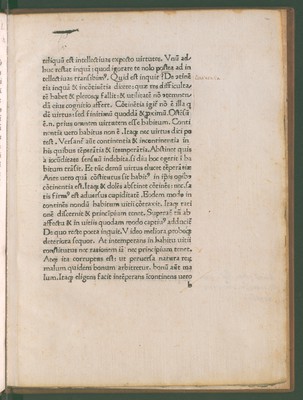 reliquũ est intellectiuas expecto uirtutes. Vnũ ad-
huc restat inquã: quod ignorare te nolo postea ad in
tellectiuas transibimꝰ. Quid est inquit? De cõtinẽ
tia inquã & incõtinẽtia dicere: quæ res difficulta-
tẽ habet & plerosq; fallit: &
dã eius cognitio affert. Cõtinẽtia igit̃ nõ ẽ illa q̃
dã uirtus: sed finitimũ quoddã & proximũ. Ostẽsũ
ẽ.n. prius omnem uirtutem esse habitum. Conti
nentia uero habitus non ẽ. Itaq; nec uirtus dici po
test. Versant̃ aũt continentia & incontinentia in
his quibus tẽperãtia & ĩtemperãtia. Abstinet quis
a iocũditate sensuũ indebita. si diu hoc egerit ĩ ha
bitum transit. Et tũc demũ uirtus elucet tẽperãtiæ
Ante uero quã cõstitutus sit habitꝰ in ipsis
cõtinentia est. Itaq; & dolẽs abstinet cõtinẽs: nec sa
tis firmꝰ est aduersus cupiditatẽ. Eodem modo in
continẽs nondũ habitum uitii cõtraxit. Itaq; rati
one discernit & principium tenet. Superat̃ tñ ab
affectu & in uitiis quodam modo captꝰ adducit̃
De quo recte poeta inquit. Video meliora proboq;
deteriora sequor. At intemperans in habitu uitii
constitutus nec rationem ïã nec principium tenet.
Atq; ita corruptus est: ut peruersa natura iam
malum quidem bonum arbitretur. bonũ aũt ma
lum. Itaq; eligens facit intẽperans ĩcontinens uero
b